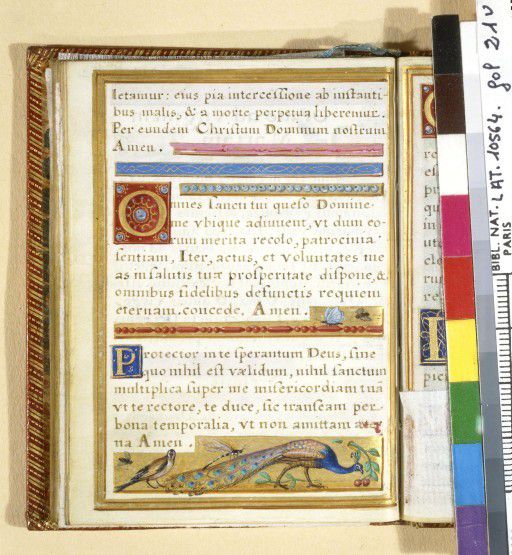 letamur: eius pia intercessione ab instanti-
bus malis, & a morte perpetua liberemur.
Per eundem Christum Dominum nostrum
Amen.
Omnes sancti tui queso Domine
me vbique adiuuent, vt dum eo-
rum merita recolo, patrocinia
sentiam, Iter, actus, et voluntates me
as in salutis tuæ prosperitate dispone, &
omnibus fidelibus defunctis requiem
eternam concede, Amen.
Protector in te sperantum Deus, sine
quo nihil est validum, nihil sanctum
multiplica super me misericordiam tuã
vt te rectore, te duce, sic transeam per
bona temporalia, vt non amittam æter
na Amen.
BIBL. NAT. LAT. 10564. fol 21v
PARIS